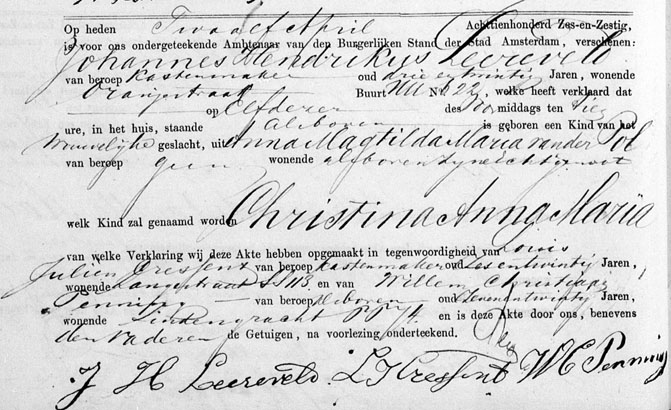 Op heden Twaalf April Achttienhonderd Zes-en-Zestig,
is voor ons ondergeteekende Ambtenaar van den Burgerlijken Stand der Stad Amsterdam, verschenen:
Johannes Hendrikus Leereveld
van beroep Kastenmaker oud drie en twintig Jaren, wonende
Oranjestraat Buurt No. 22, welke heeft verklaard dat
op Elfdezer des Voor middags ten
ure, in het huis, staande Alsboven is geboren een Kind van het
Vrouwelijke geslacht, uit Anna Magtilda Maria van der Pol
van beroep geen wonende alsboven zyne echtgenoot
welk Kind zal genaamd worden Christina Anna Maria
van welke Verklaring wij deze Akte hebben opgemaakt in tegenwoordigheid van Louis
Julien Cressent van beroep Kastenmaker oud Zesentwintig Jaren,
wonende Langestraat SS 113 en van Willem Christiaan
Penning van beroep Alsboven oud Zevenentwintig Jaren,
wonende Lindengracht PP 4 en is deze Akte door ons, benevens
den Vader en de Getuigen, na voorlezing onderteekend.
J H Leereveld L J Cressent W C Penning